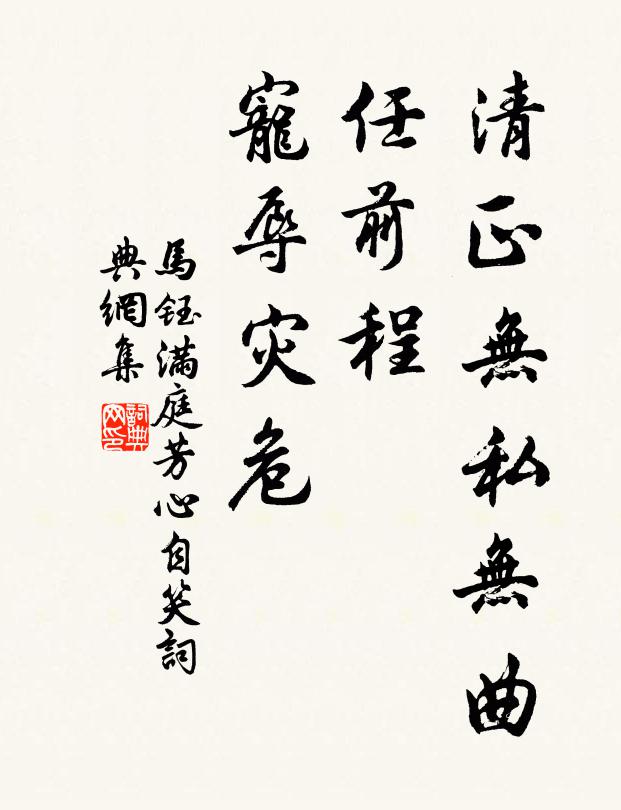 清正無私無曲
任前程
寵辱灾危
馬鈺滿庭芳心自笑詞
典網集
詞典
网印